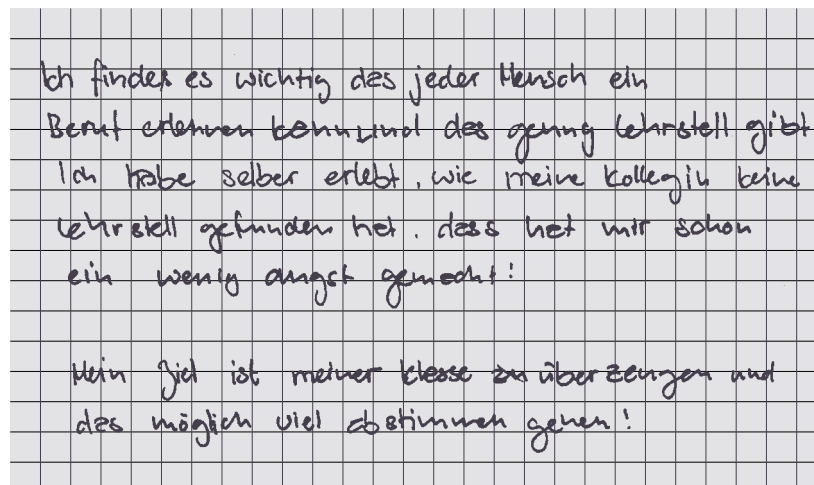 Ich findes es wichtig das jeder Mensch ein
Beruf erlehnen kann und das genug Lehrstell gibt
Ich habe selber erlebt, wie meine Kollegin keine
Lehrstell gefunden hat. dass hat mir schon
ein wenig angst gemacht!
Mein Ziel ist meiner Klasse zu überzeugen und
das möglich viel abstimmen gehen!